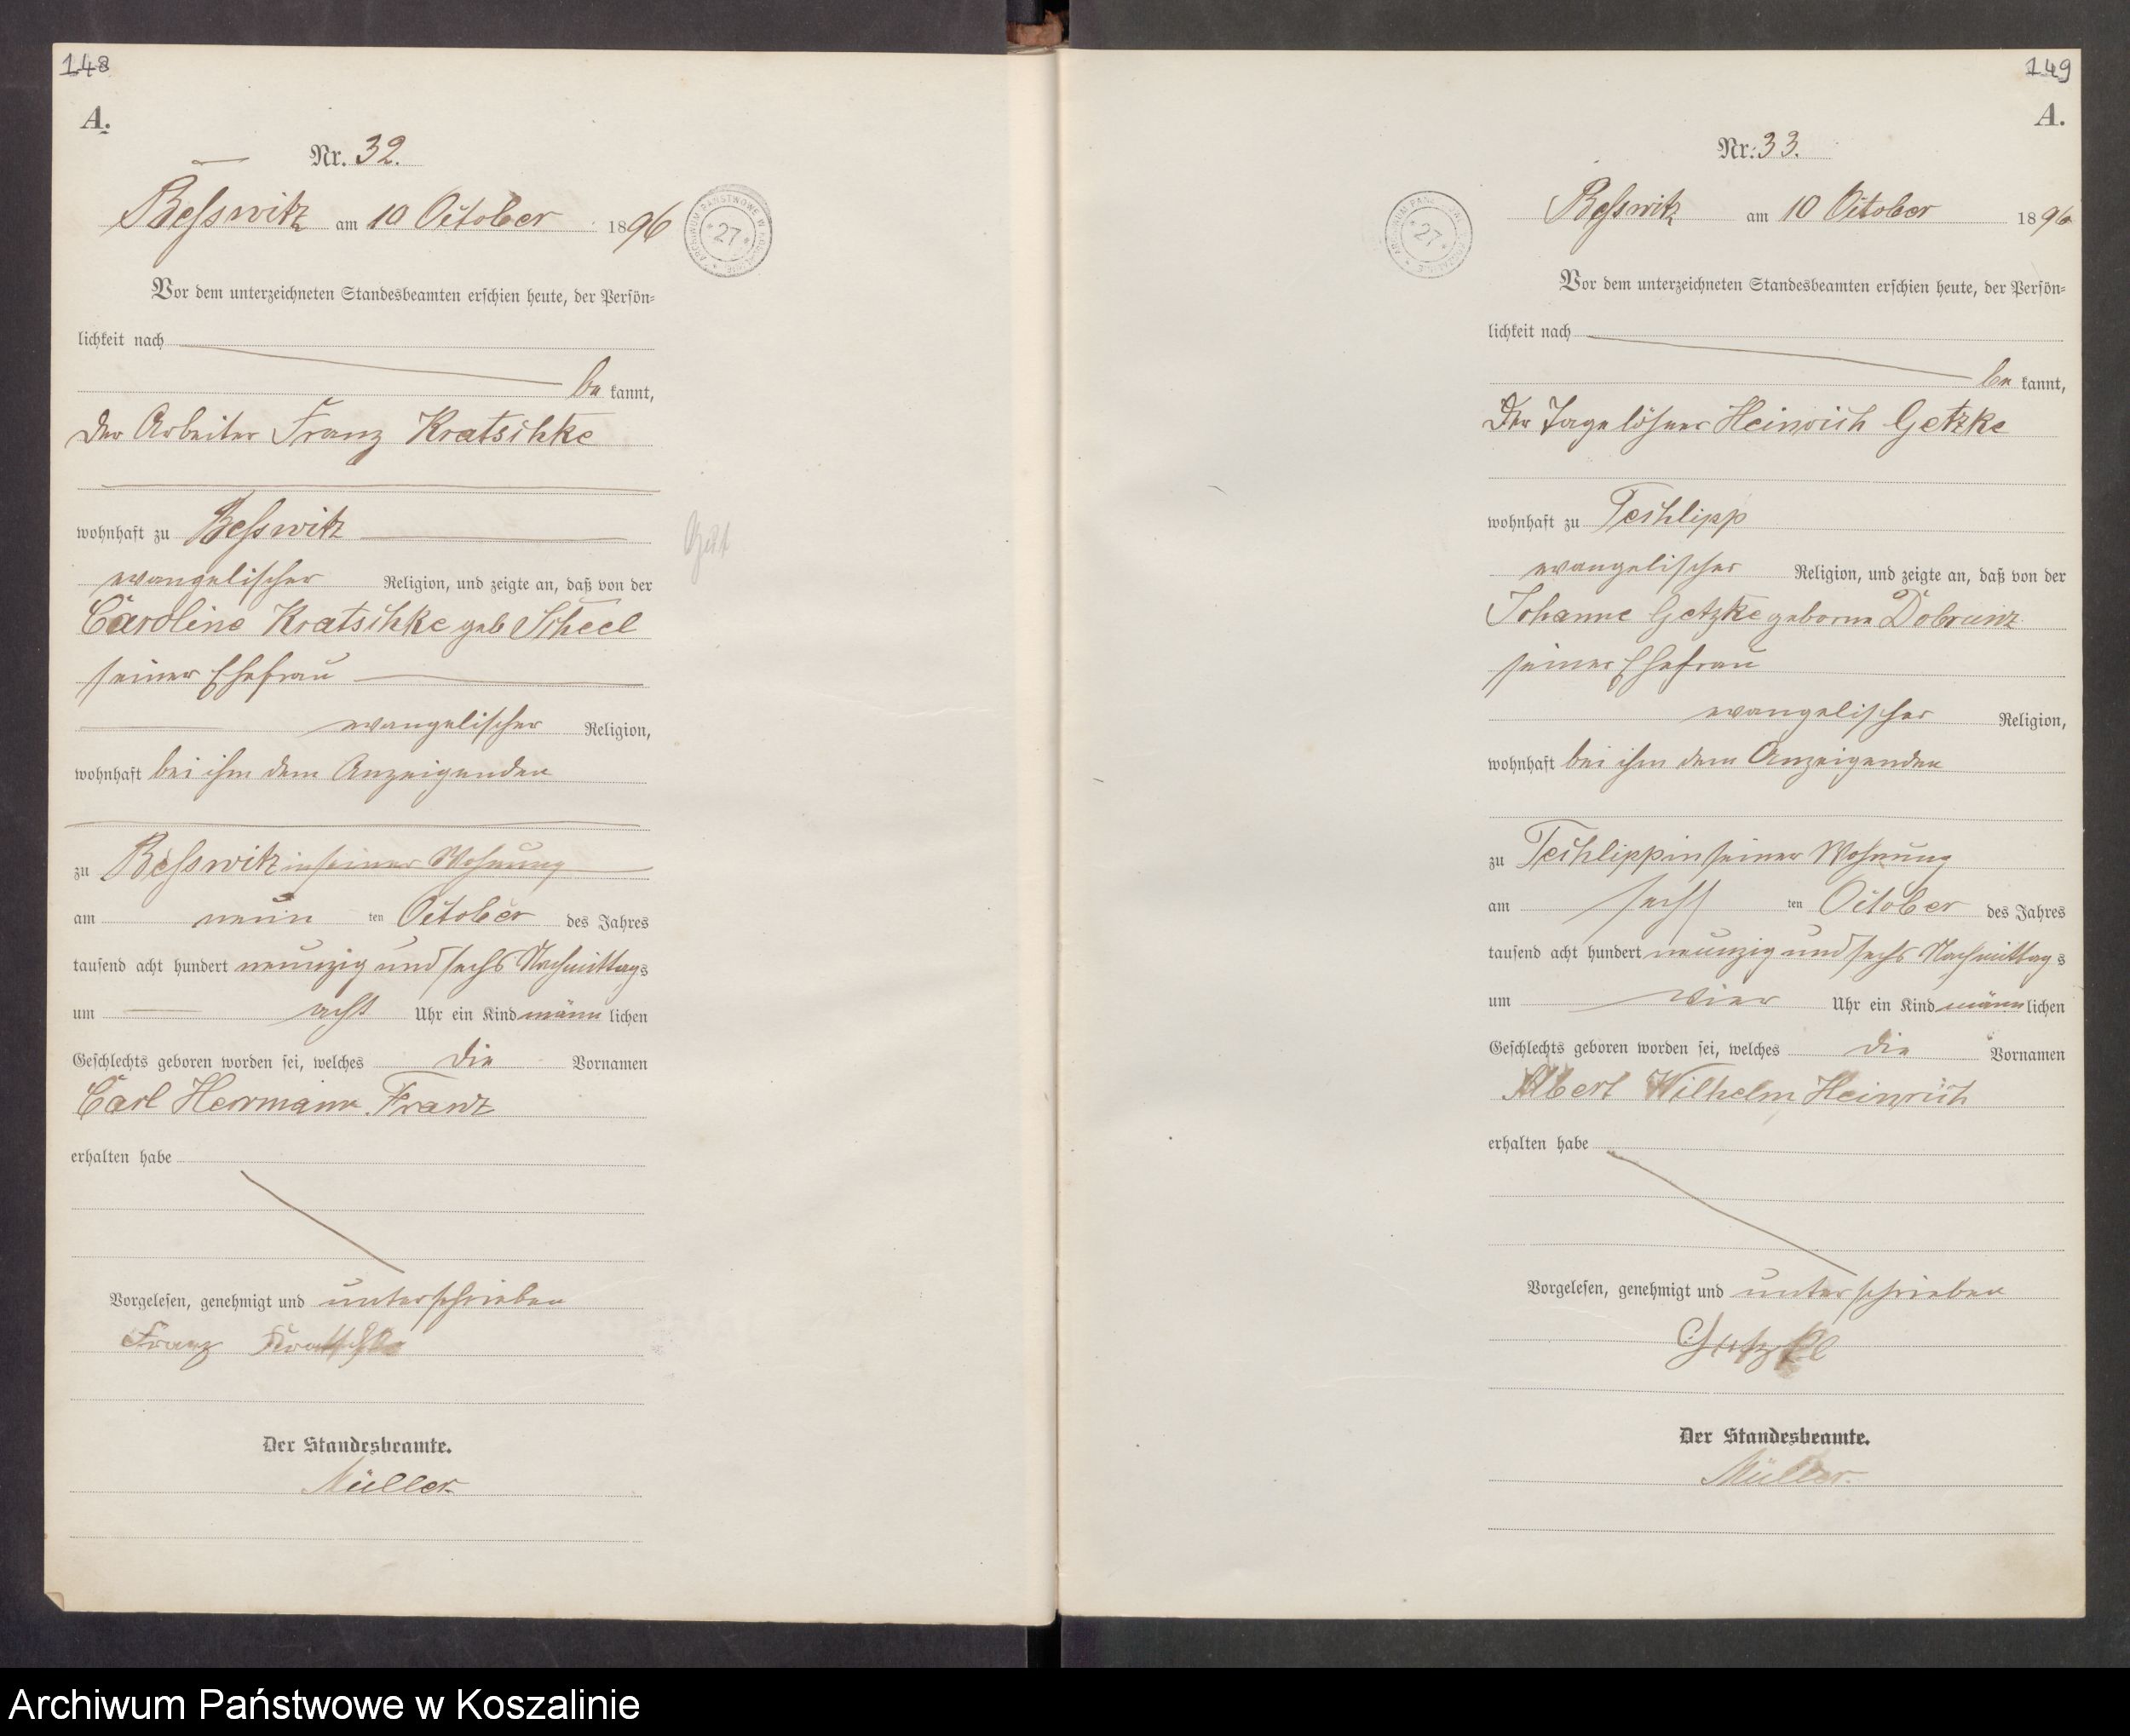 148
A.
Nr. 32.
Besswitz am 10 October 1896
ARCHIWUM PAŃSTWOWE W KOSZALINIE
* 27 *
Vor dem unterzeichneten Standesbeamten erschien heute, der Persön=
lichkeit nach
be kannt,
der Arbeiter Franz Kratschke
wohnhaft zu Besswitz
Gut
evangelischer Religion, und zeigte an, daß von der
Caroline Kratschke geb Scheel
seiner Ehefrau
evangelischer Religion,
wohnhaft bei ihm dem Anzeigenden
zu Besswitz in seiner Wohnung
am neun ten October des Jahres
tausend acht hundert neunzig und sechs Nachmittags
um acht Uhr ein Kind männ lichen
Geschlechts geboren worden sei, welches die Vornamen
Carl Herrmann Franz
erhalten habe
Vorgelesen, genehmigt und unterschrieben
Franz Kratschke
Der Standesbeamte.
Müller
149
A.
Nr. 33.
Besswitz am 10 October 1896
ARCHIWUM PAŃSTWOWE W KOSZALINIE
* 27 *
Vor dem unterzeichneten Standesbeamten erschien heute, der Persön=
lichkeit nach
be kannt,
Der Tagelöhner Heinrich Getzke
wohnhaft zu Techlipp
evangelischer Religion, und zeigte an, daß von der
Johanne Getzke geborne Dobrunz
seiner Ehefrau
evangelischer Religion,
wohnhaft bei ihm dem Anzeigenden
zu Techlipp in seiner Wohnung
am sechs ten October des Jahres
tausend acht hundert neunzig und sechs Nachmittag s
um vier Uhr ein Kind männ lichen
Geschlechts geboren worden sei, welches die Vornamen
Albert Wilhelm Heinrich
erhalten habe
Vorgelesen, genehmigt und unterschrieben
Getzke
Der Standesbeamte.
Müller.
Archiwum Państwowe w Koszalinie